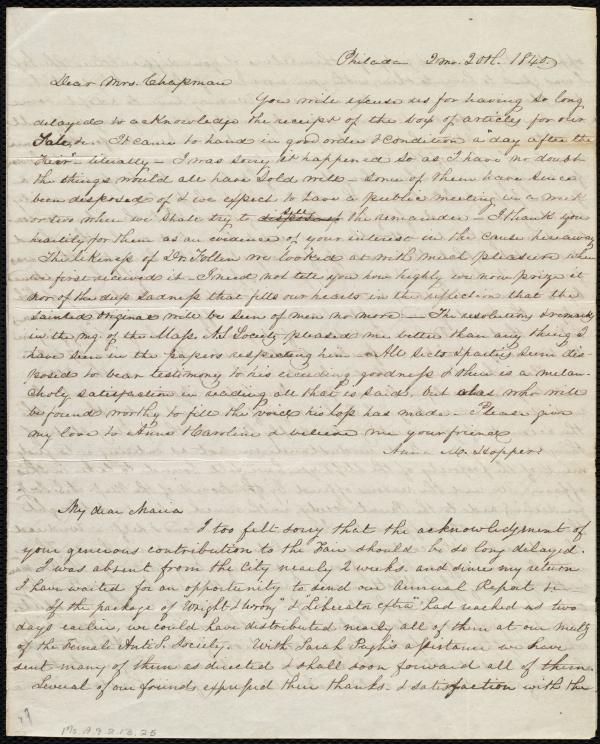 Philada 2 mo. 20th. 1840.
Dear Mrs. Chapman
You will excuse us for having so long
delayed to acknowledge the receipt of the box of articles for our
Sale, It came to hand in good order & condition a "day after the
Fair" literally – I was sorry it happened so as I have no doubt
the things would all have sold well – some of them have since
been disposed of & we expect to have a public meeting in a week
or two when we shall try to dispose of sell the remainder – I thank you
heartily for them as an evidence of your interest in the cause hereaway
The likeness of Dr. Follen we looked at with much pleasure when
we first received it – I need not tell you how highly we now prize it
nor of the deep sadness that fills our hearts in the reflection that the
sainted original will be seen of men no more – The resolutions & remarks
in the mg. of the Mass. A.S. Society pleased me better than any thing I
have seen in the papers respecting him – All sects & parties seem dis-
posed to bear testimony to his exceeding goodness & there is a melan-
choly satisfaction in reading all that is said, but alas who will
be found worthy to fill the void his loss has made – Please give
my love to Anne & Caroline & believe me your friend
Anna M. Hopper
My dear Maria
I too felt sorry that the acknowledgment of
your generous contribution to the Fair should be so long delayed.
I was absent from the City nearly 2 weeks. and since my return
I have waited for an opportunity to send our Annual Report &c –
If the package of "Right & Wrong" & "Liberator extra" had reached us two
days earlier, we could have distributed nearly all of them at our meetg
of the Female Anti S. Society. With Sarah Pugh's assistance we have
sent many of them as directed & shall soon forward all of them.
Several of our friends expressed their thanks & satisfaction with the
Ms. A.9.2.13.25